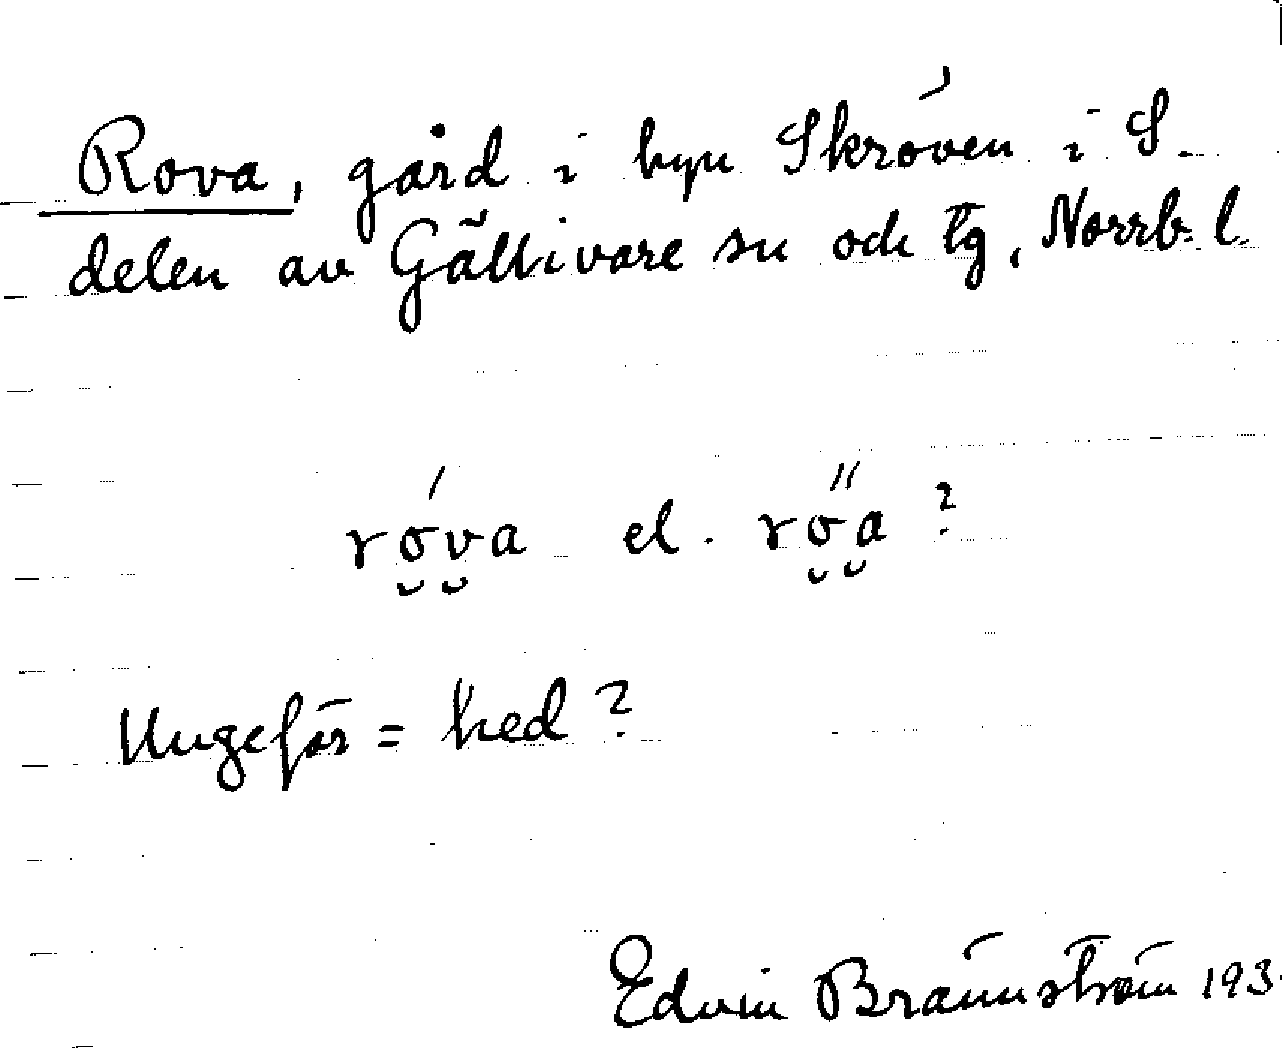 Rova, gård i byn Skröven i S.
delen av Gällivare sn och tg, Norrb. l.
rova el. röa ?
Ungefär = hed ?
Edvin Brännström 193